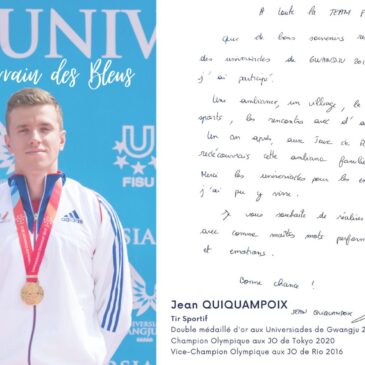 UNIV
rrain des Bleus
FISU
SIA
A toute la TEAM F
que de bons souvenirs
des universiades de GWANGJU 201
j'ai participé.
Une ambiance, un village, le
sports, les rencontres avec d'a
Un an après, aux Jeux de R
cette familia
Merci les universiades pour les
j'ai pu y vivre.
Je vous souhaite de réaliser
avec comme maîtres mots perform
et émotions.
Bonne chance !
Jean QUIQUAMPOIX
JEAN QUIQUAMPOIX
Tir Sportif
Double médaillé d'or aux Universiades de Gwangju 2
Champion Olympique aux JO de Tokyo 2020
Vice-Champion Olympique aux JO de Rio 2016